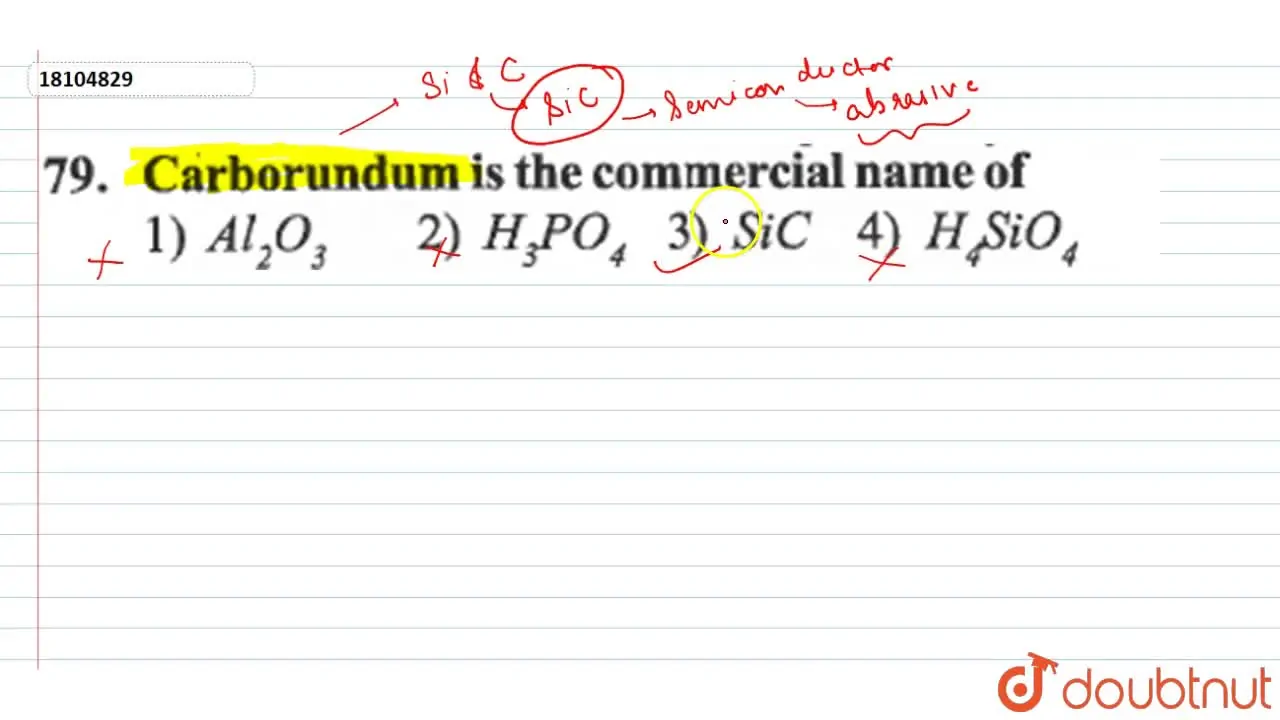 18104829
Si & C
SiC → Semicon ductor
→ abrasive
79. Carborundum is the commercial name of
1) Al₂O₃ 2) H₃PO₄ 3) SiC 4) H₄SiO₄
doubtnut